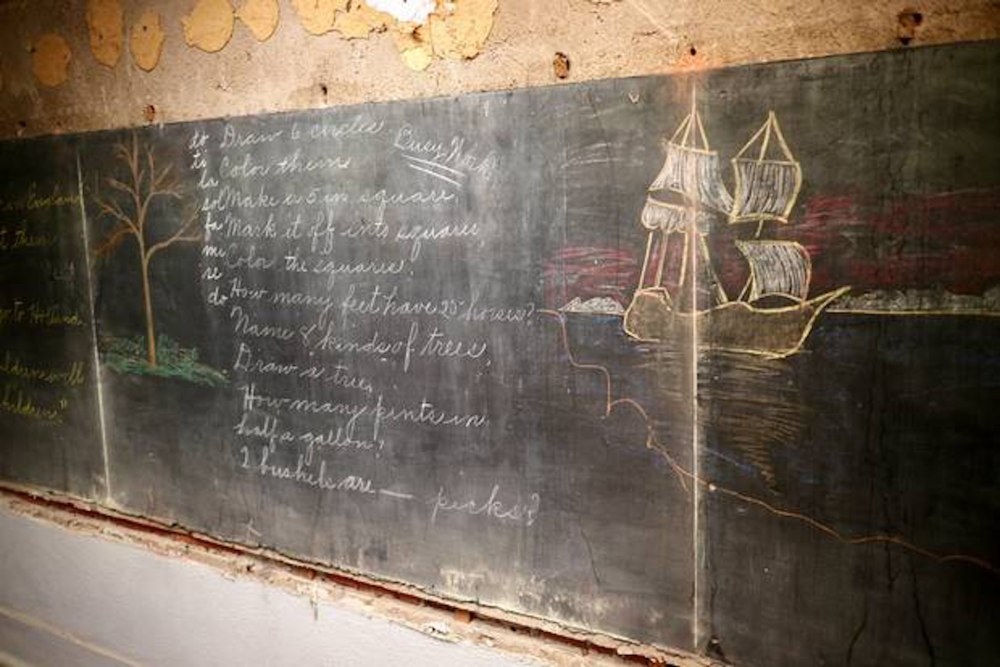 in England
them
go to Holland
will
children"
Busy Work
do
ti
la
sol
fa
mi
re
do
Draw 6 circles.
Color them
Make a 5 in square.
Mark it off into squares.
Color the squares.
How many feet have 25 horses?
Name 8 kinds of trees.
Draw a tree.
How many pints in
half a gallon?
2 bushels are — pecks?